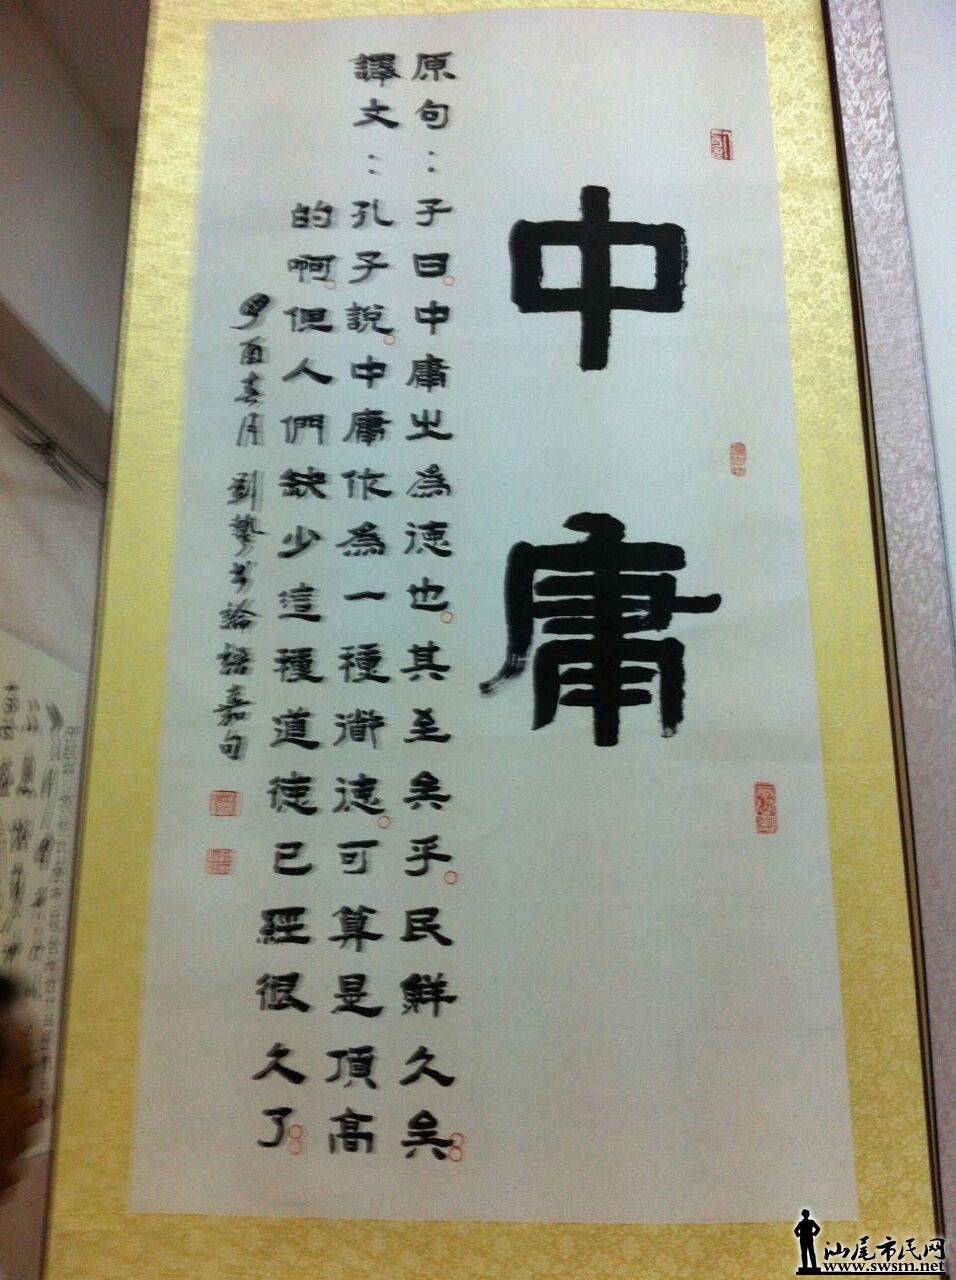 中庸
原句：子曰。中庸之為德也。其至矣乎。民鮮久矣。
譯文：孔子說。中庸作為一種道德。可算是頂高
的啊。但人們缺少這種道德已經很久了。
酉春月 劉摯书論語嘉句
汕尾市民网
www.swsm.net